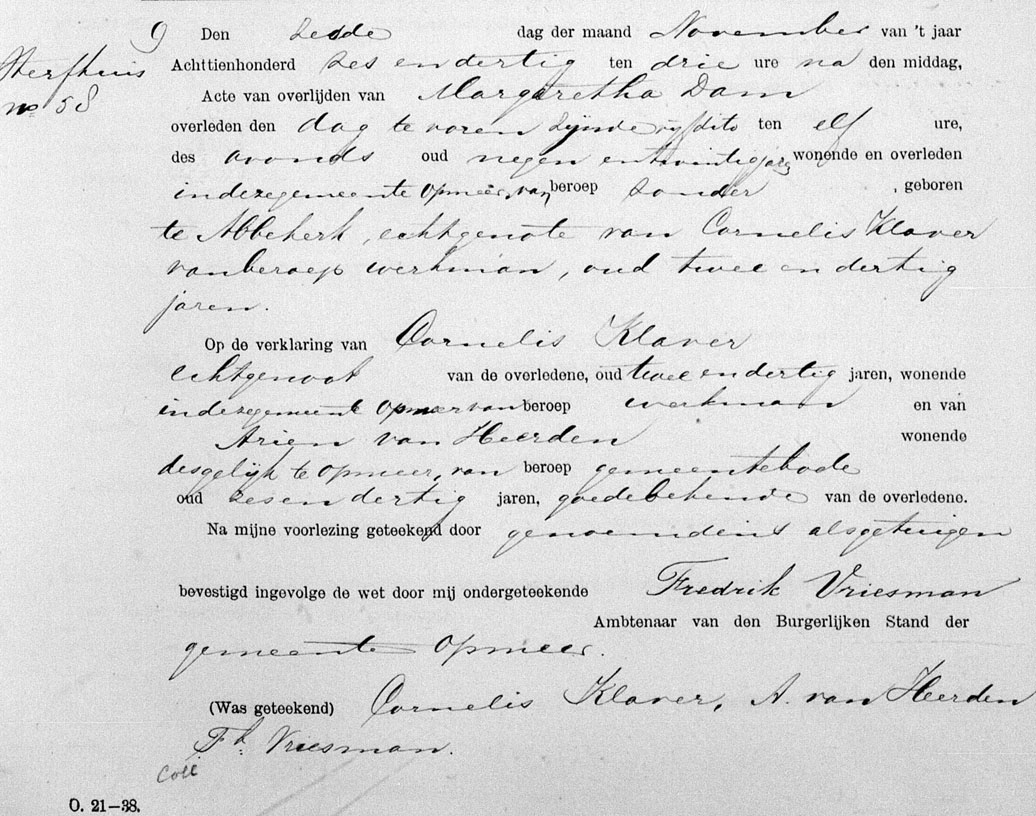 9 Den zesde dag der maand November van 't jaar
Sterfhuis
no 58
Achttienhonderd zes en dertig ten drie ure na den middag,
Acte van overlijden van Margaretha Dam
overleden den dag te voren zynde vyf dito ten elf ure,
des avonds oud negen en twintig jaren wonende en overleden
in deze gemeente Opmeer, van beroep zonder, geboren
te Abbekerk, echtgenote van Cornelis Klaver
van beroep werkman, oud twee en dertig
jaren.
Op de verklaring van Cornelis Klaver
echtgenoot van de overledene, oud twee en dertig jaren, wonende
in deze gemeente Opmeer van beroep werkman en van
Arien van Heerden wonende
desgelijk te Opmeer, van beroep gemeentebode
oud zes en dertig jaren, goede bekende van de overledene.
Na mijne voorlezing geteekend door genoemden als getuigen
bevestigd ingevolge de wet door mij ondergeteekende Fredrik Vriesman
Ambtenaar van den Burgerlijken Stand der
gemeente Opmeer.
(Was geteekend) Cornelis Klaver, A. van Heerden
Fk. Vriesman.
Coll
O. 21—38.